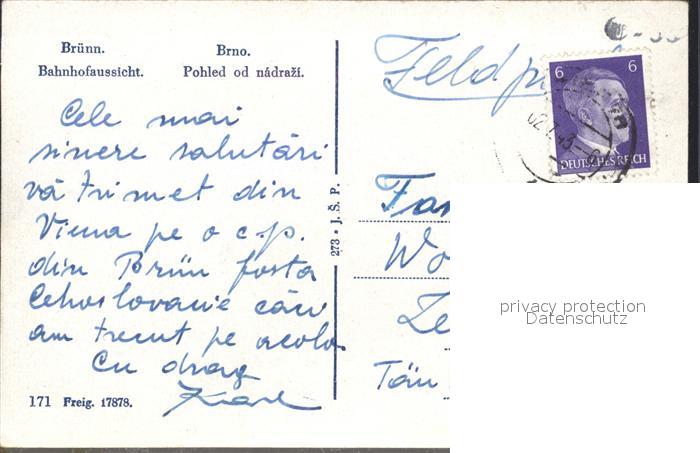 Brünn. Brno.
Bahnhofaussicht. Pohled od nádraží.
Cele mai
sincere salutări
vă trimet din
Viena pe o c.p.
din Brün fosta
Cehoslovacie căci
am trecut pe acolo.
Cu drag
Karl
171 Freig. 17878.
273 • J. Š. P.
Feldp
6 6
DEUTSCHES REICH
Wo
privacy protection
Datenschutz